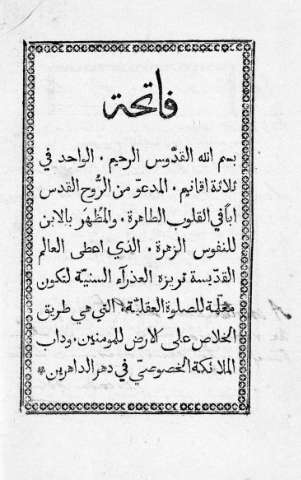 فاتحة
بسم الله القدّوس الرحيم ٠ الواحد في
ثلاثة اقانيم ٠ المدعوّ من الرُّوح القدس
اباً في القلوب الطاهرة ٠ والمظهَر بالابن
للنفوس الزهرة ٠ الذي اعطى العالم
القديسة تريزه العذرآء السنيّة لتكون
معلمة للصلوة العقليّة التي هي طريق
الخلاص على الارض للمومنين ٠ وداب
الملائكة الخصوصيّ في دهر الداهرين *